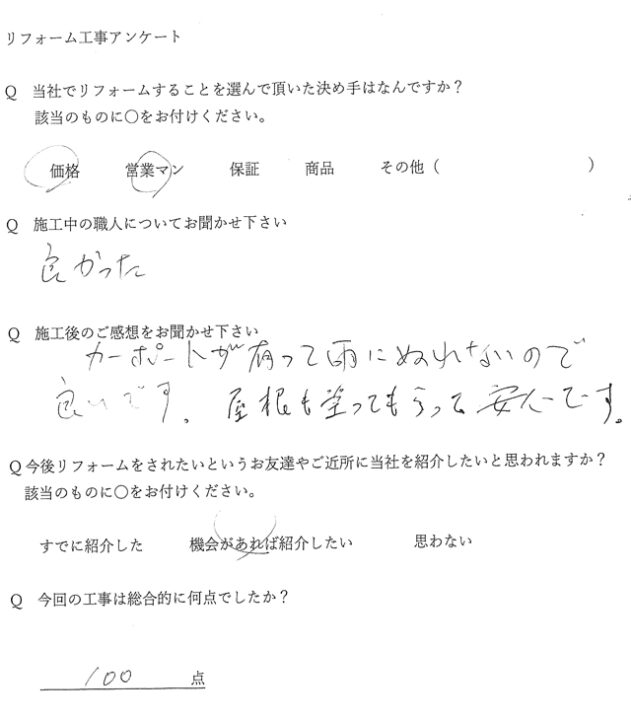 リフォーム工事アンケート
Q 当社でリフォームすることを選んで頂いた決め手はなんですか?
該当のものに○をお付けください。
価格 営業マン 保証 商品 その他( )
Q 施工中の職人についてお聞かせ下さい
良かった
Q 施工後のご感想をお聞かせ下さい
カーポートが有って雨にぬれないので
良いです。屋根も塗ってもらって安心です。
Q今後リフォームをされたいというお友達やご近所に当社を紹介したいと思われますか?
該当のものに○をお付けください。
すでに紹介した 機会があれば紹介したい 思わない
Q 今回の工事は総合的に何点でしたか?
100 点